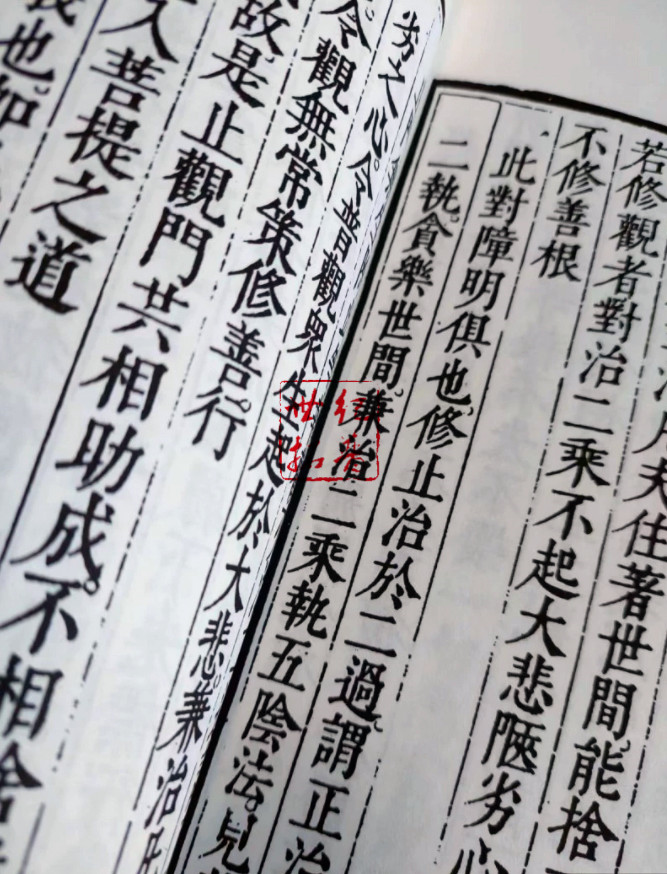 治凡夫住著世間。能捨
若修觀者對治二乘不起大悲陿劣心
不修善根
此對障明俱也。修止治於二過。謂正治
二執。貪樂世間。兼治二乘執五陰法。
劣之心。令普觀眾生起於大悲。兼治
令觀無常策修善行。
故。是止觀門共相助成。不相捨
入菩提之道
也。如